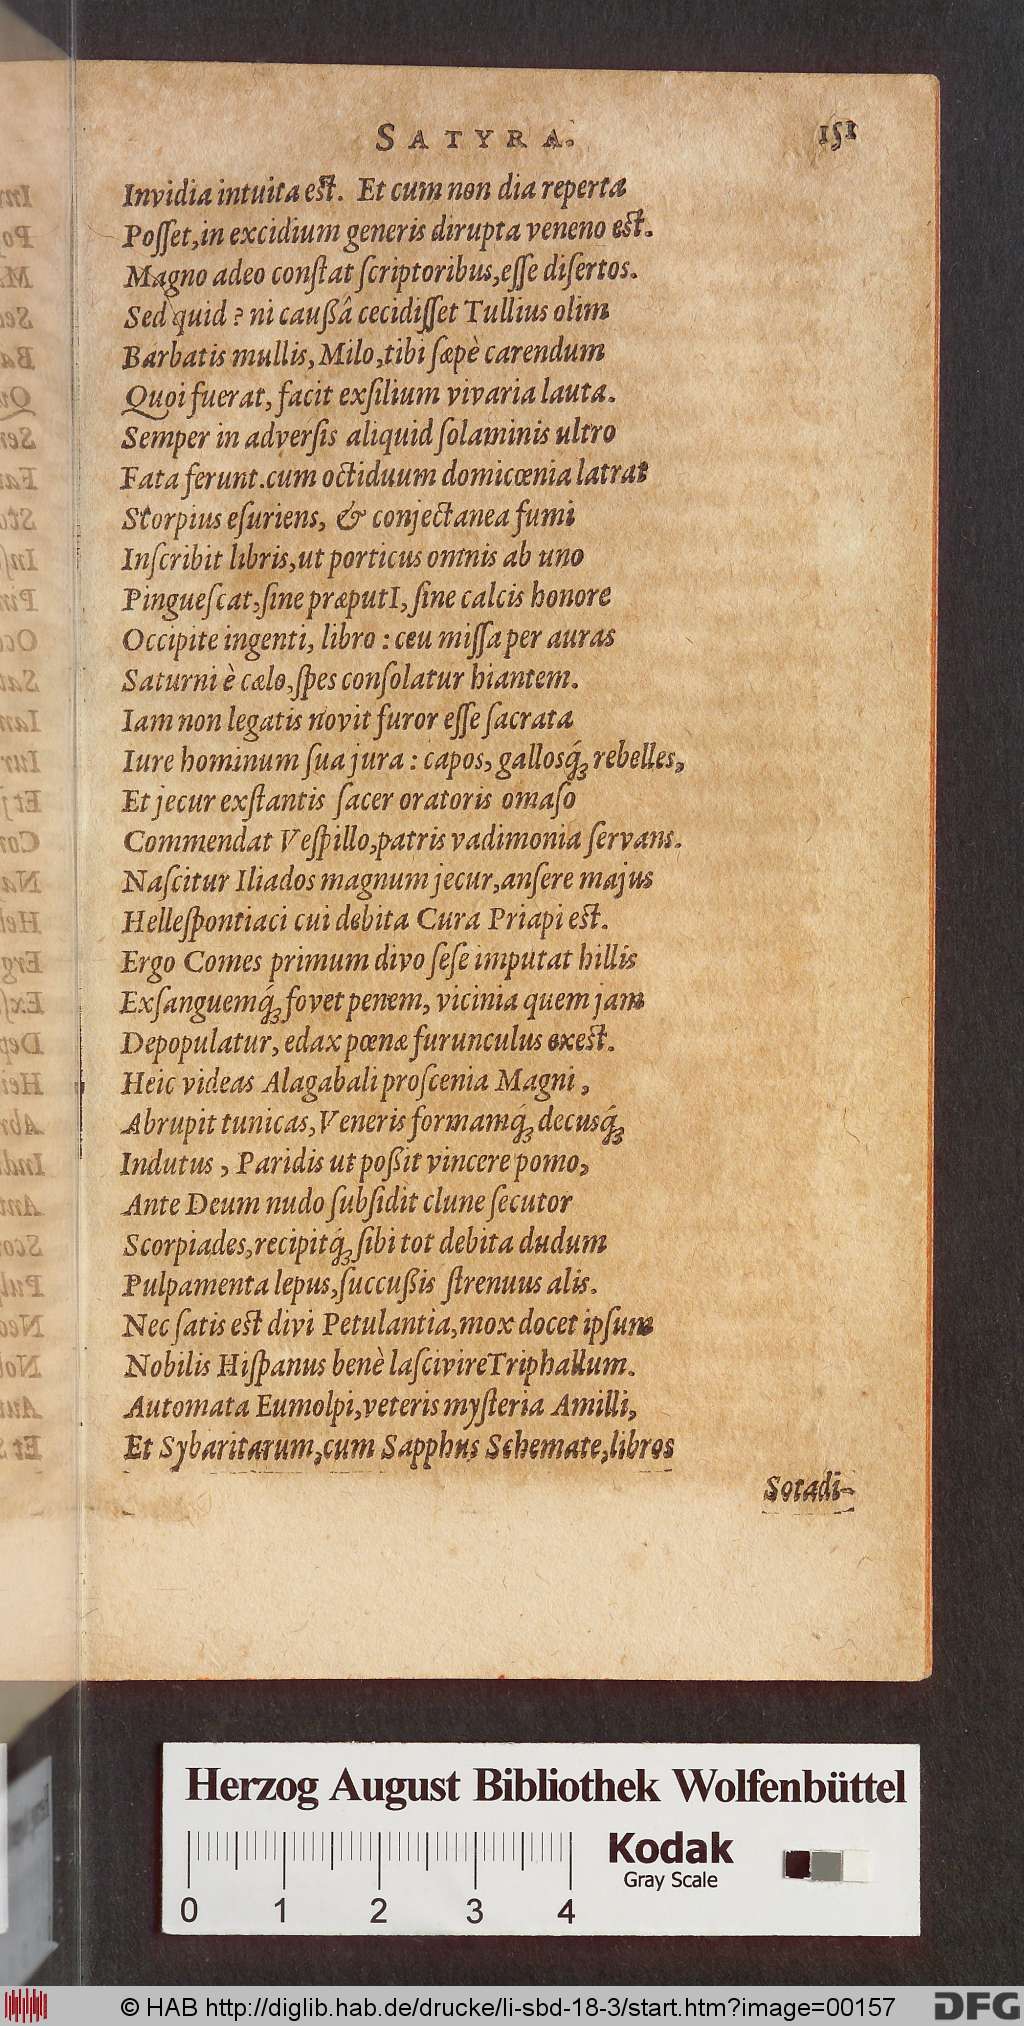 SATYRA. 151
Invidia intuita est. Et cum non dia reperta
Posſet,in excidium generis dirupta veneno est.
Magno adeo conſtat ſcriptoribus,eſſe diſertos.
Sed quid ? ni caußâ cecidiſſet Tullius olim
Barbatis mullis, Milo,tibi ſæpè carendum
Quoi fuerat, facit exſilium vivaria lauta.
Semper in adverſis aliquid ſolaminis ultro
Fata ferunt.cum octiduum domicœnia latrat
Storpius eſuriens, & conjectanea fumi
Inſcribit libris,ut porticus omnis ab uno
Pingueſcat,ſine præputI, ſine calcis honore
Occipite ingenti, libro : ceu miſſa per auras
Saturni è cælo,ſpes conſolatur hiantem.
Iam non legatis novit furor eſſe ſacrata
Iure hominum ſua jura : capos, gallosq́ꝫ rebelles,
Et jecur exſtantis ſacer oratoris omaſo
Commendat Veſpillo,patris vadimonia ſervans.
Naſcitur Iliados magnum jecur,anſere majus
Helleſpontiaci cui debita Cura Priapi est.
Ergo Comes primum divo ſeſe imputat hillis
Exſanguemq́ꝫ fovet penem, vicinia quem jam
Depopulatur, edax pœnæ furunculus exest.
Heic videas Alagabali proſcenia Magni ,
Abrupit tunicas,Veneris formamq́ꝫ decusq́ꝫ
Indutus , Paridis ut poßit vincere pomo,
Ante Deum nudo ſubſidit clune ſecutor
Scorpiades,recipitq́ꝫ ſibi tot debita dudum
Pulpamenta lepus,ſuccußis ſtrenuus alis.
Nec ſatis est divi Petulantia,mox docet ipſum
Nobilis Hiſpanus benè laſcivire Triphallum.
Automata Eumolpi,veteris myſteria Amilli,
Et Sybaritarum,cum Sapphus Schemate,libros
Sotadi-
Herzog August Bibliothek Wolfenbüttel
Kodak
Gray Scale
0 1 2 3 4
© HAB http://diglib.hab.de/drucke/li-sbd-18-3/start.htm?image=00157 DFG